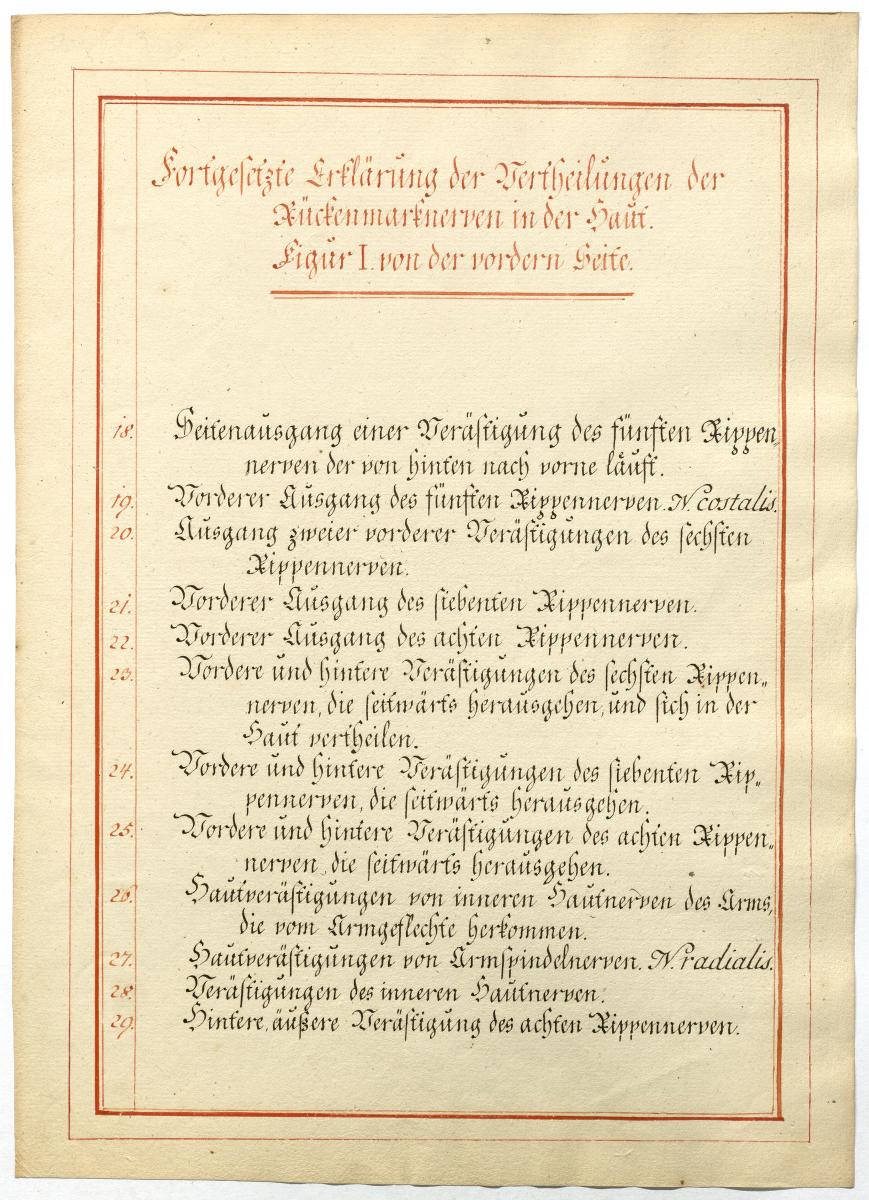 Fortgesetzte Erklärung der Vertheilungen der
Rückenmarknerven in der Haut.
Figur I. von der vordern Seite.
18. Seitenausgang einer Verästigung des fünften Rippen„
nerven der von hinten nach vorne läuft.
19. Vorderer Ausgang des fünften Rippennerven. N. costalis.
20. Ausgang zweier vorderer Verästigungen des sechsten
Rippennerven.
21. Vorderer Ausgang des siebenten Rippennerven.
22. Vorderer Ausgang des achten Rippennerven.
23. Vordere und hintere Verästigungen des sechsten Rippen„
nerven, die seitwärts herausgehen, und sich in der
Haut vertheilen.
24. Vordere und hintere Verästigungen des siebenten Rip„
pennerven, die seitwärts herausgehen.
25. Vordere und hintere Verästigungen des achten Rippen„
nerven, die seitwärts herausgehen.
26. Hautverästigungen von inneren Hautnerven des Arms,
die vom Armgeflechte herkommen.
27. Hautverästigungen von Armspindelnerven. N. radialis.
28. Verästigungen des inneren Hautnerven.
29. Hintere, äußere Verästigung des achten Rippennerven.